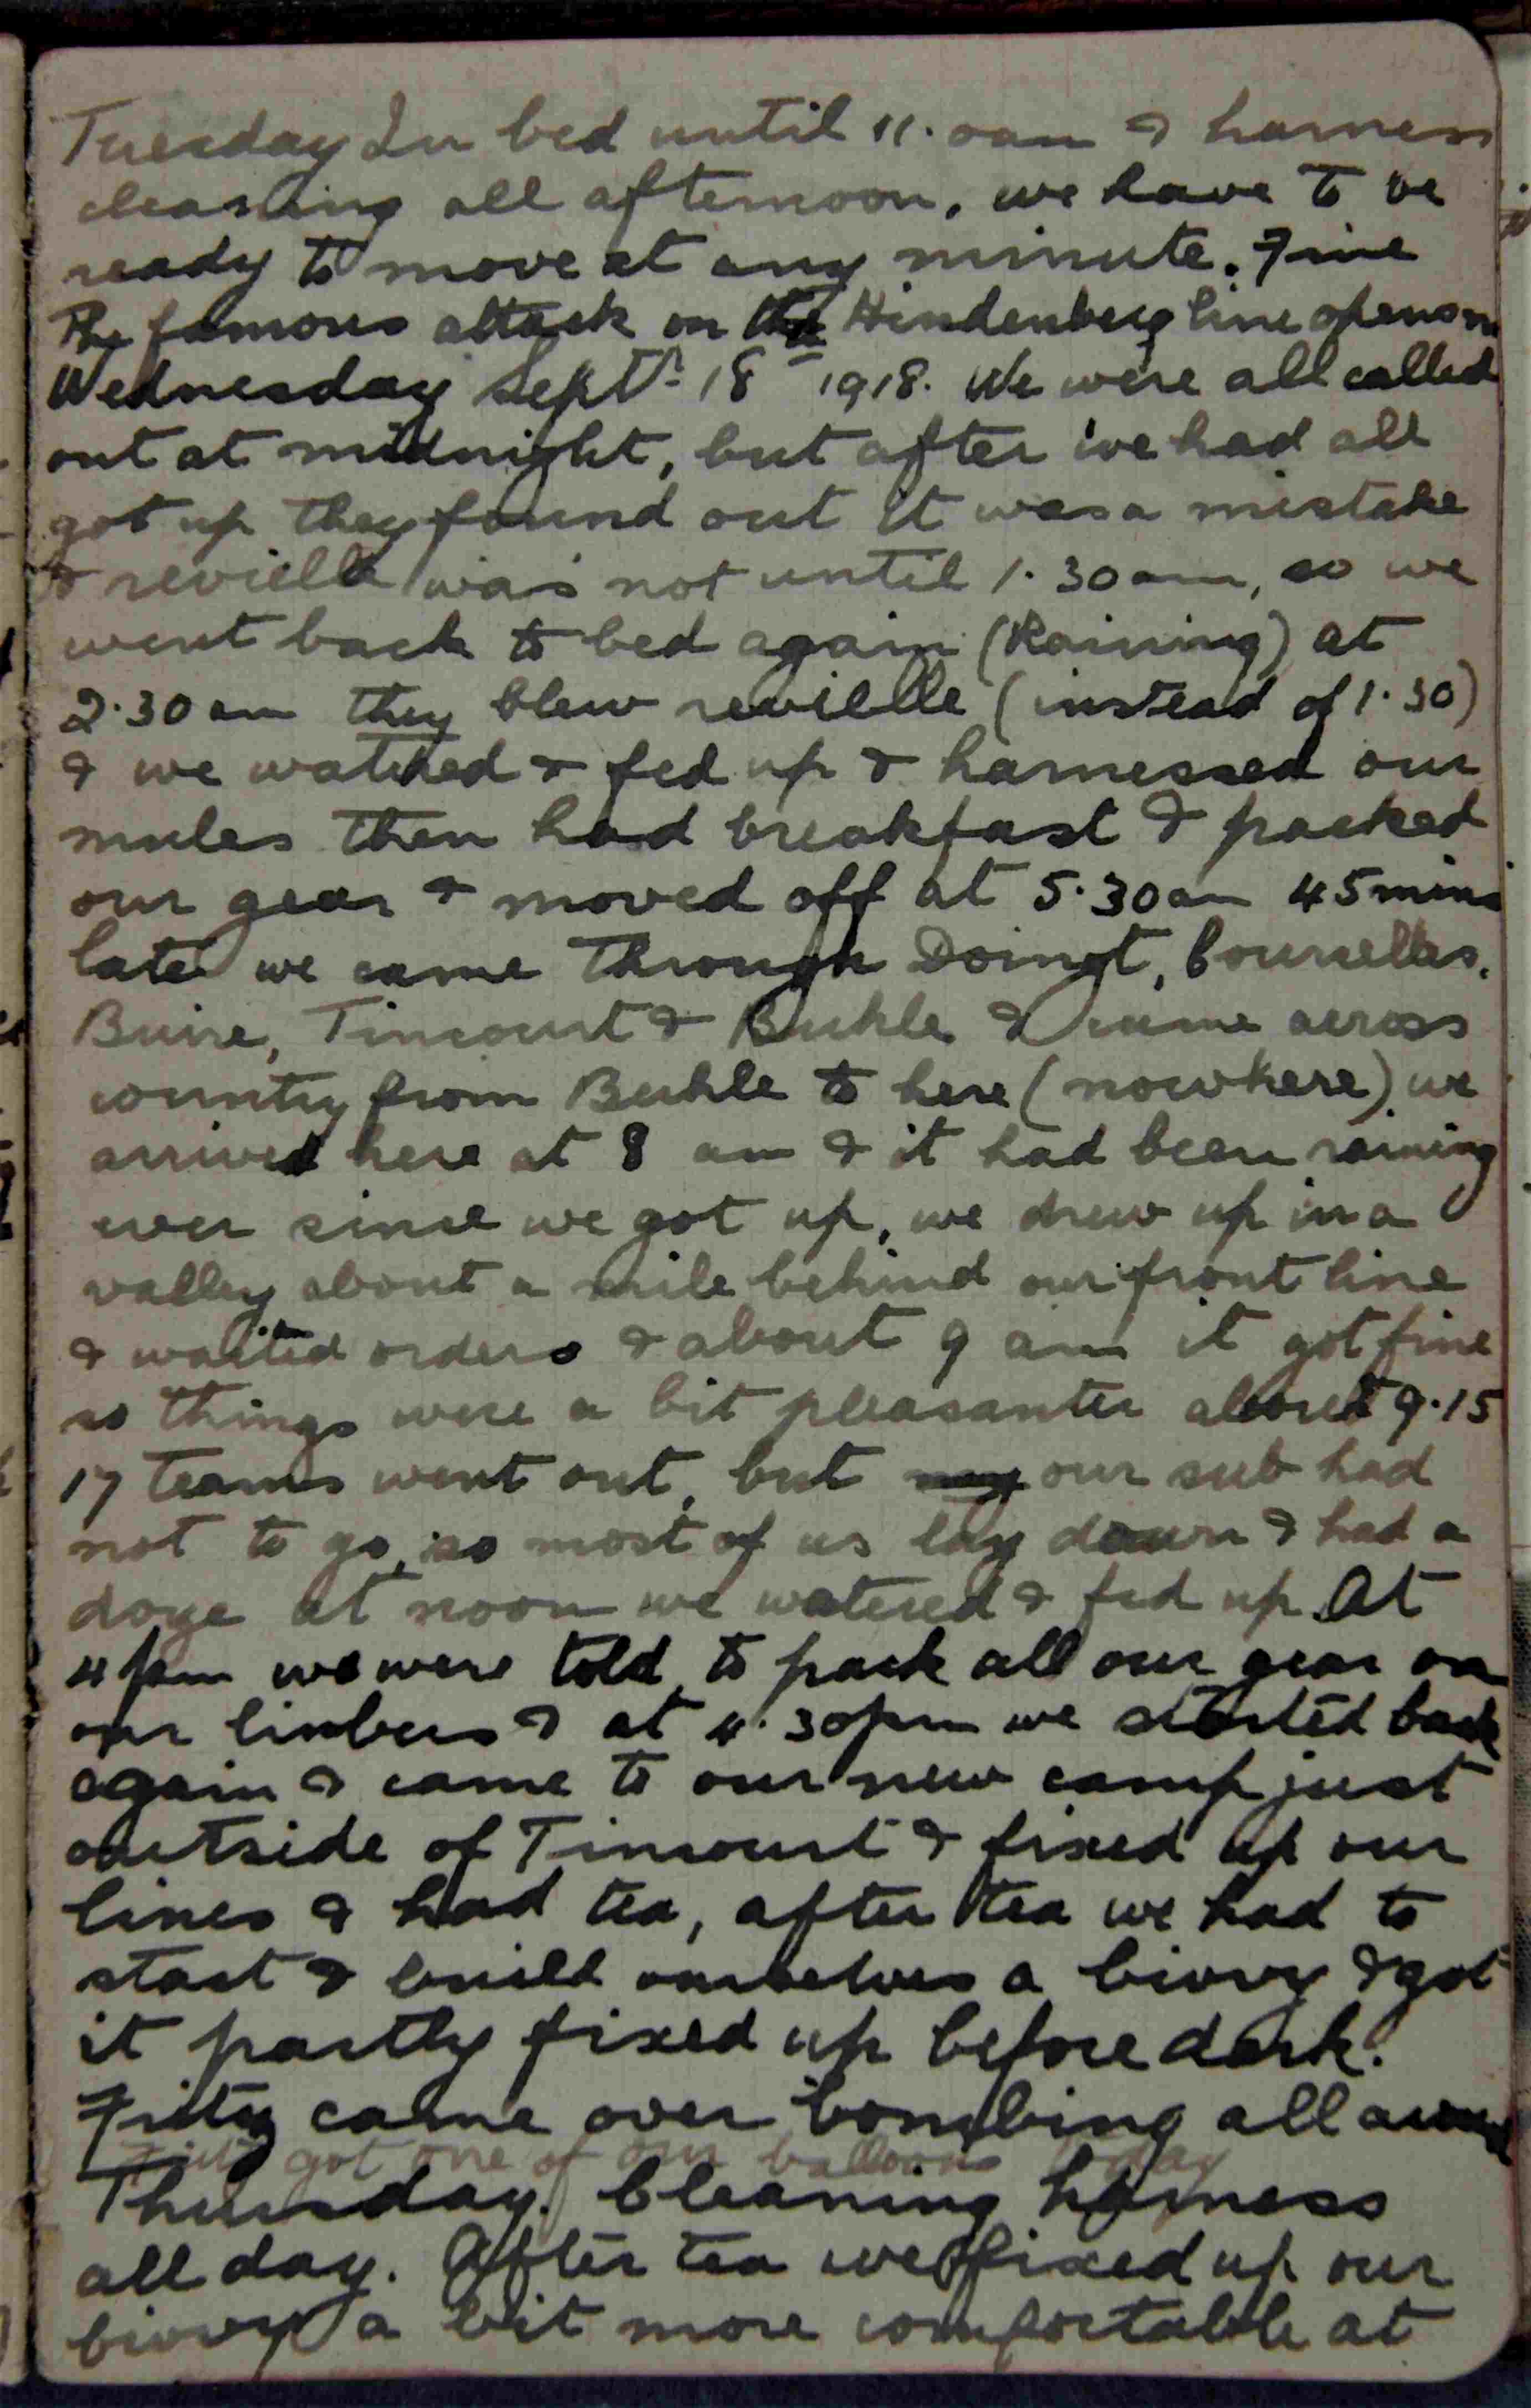 Tuesday In bed until 11.0am & harness
cleaning all afternoon, we have to be
ready to move at any minute. Fine
The famous attack on the Hindenberg line opens on
Wednesday Sept. 18th 1918. We were all called
out at midnight, but after we had all
got up they found out it was a mistake
& revielle was not until 1.30am, so we
went back to bed again (Raining) at
2.30am they blew revielle (instead of 1.30)
& we watered & fed up & harnessed our
mules then had breakfast & packed
our gear & moved off at 5.30am 45 mins
late we came through Doingt, Courcelles,
Buire, Tincourt & Buhle & came across
country from Buhle to here (nowhere) we
arrived here at 8 am & it had been raining
ever since we got up, we drew up in a
valley about a mile behind our front line
& waited orders & about 9 am it got fine
so things were a bit pleasanter about 9.15
17 teams went out, but my our sub had
not to go, so most of us lay down & had a
doze at noon we watered & fed up. At
4pm we were told to pack all our gear on
our limbers & at 4.30pm we started back
again & came to our new camp just
outside of Tincourt & fixed up our
lines & had tea, after tea we had to
start & build ourselves a bivvy & got
it partly fixed up before dark.
Fritz came over bombing all around
Fritz got one of our balloons today
Thursday. Cleaning harness
all day. After tea we fixed up our
bivvy a bit more comfortable at